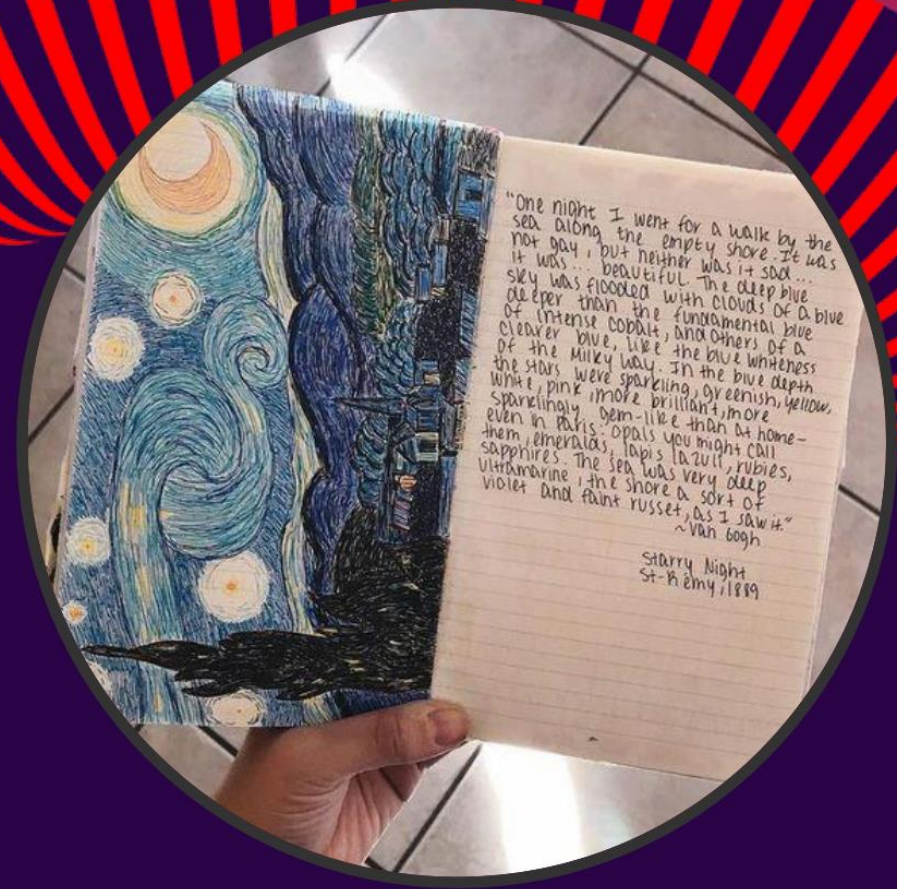 "One night I went for a walk by the
sea along the empty shore. It was
not gay, but neither was it sad...
it was... beautiful. The deep blue
sky was flooded with clouds of a blue
deeper than the fundamental blue
of intense cobalt, and others of a
clearer blue, like the blue whiteness
of the Milky Way. In the blue depth
the stars were sparkling, greenish, yellow,
white, pink, more brilliant, more
sparklingly gem-like than at home-
even in Paris: opals you might call
them, emeralds, lapis lazuli, rubies,
sapphires. The sea was very deep
ultramarine, the shore a sort of
violet and faint russet, as I saw it."
~Van Gogh
Starry Night
St-Rémy, 1889